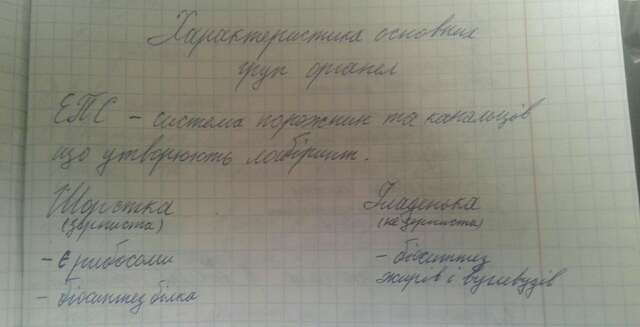 Характеристика основних
груп органел
ЕПС - система порожнин та канальців
що утворюють лабіринт.
Шорстка
(зерниста)
Гладенька
(не зерниста)
- є рибосоми
- біосинтез білка
- біосинтез
жирів і вуглевузів